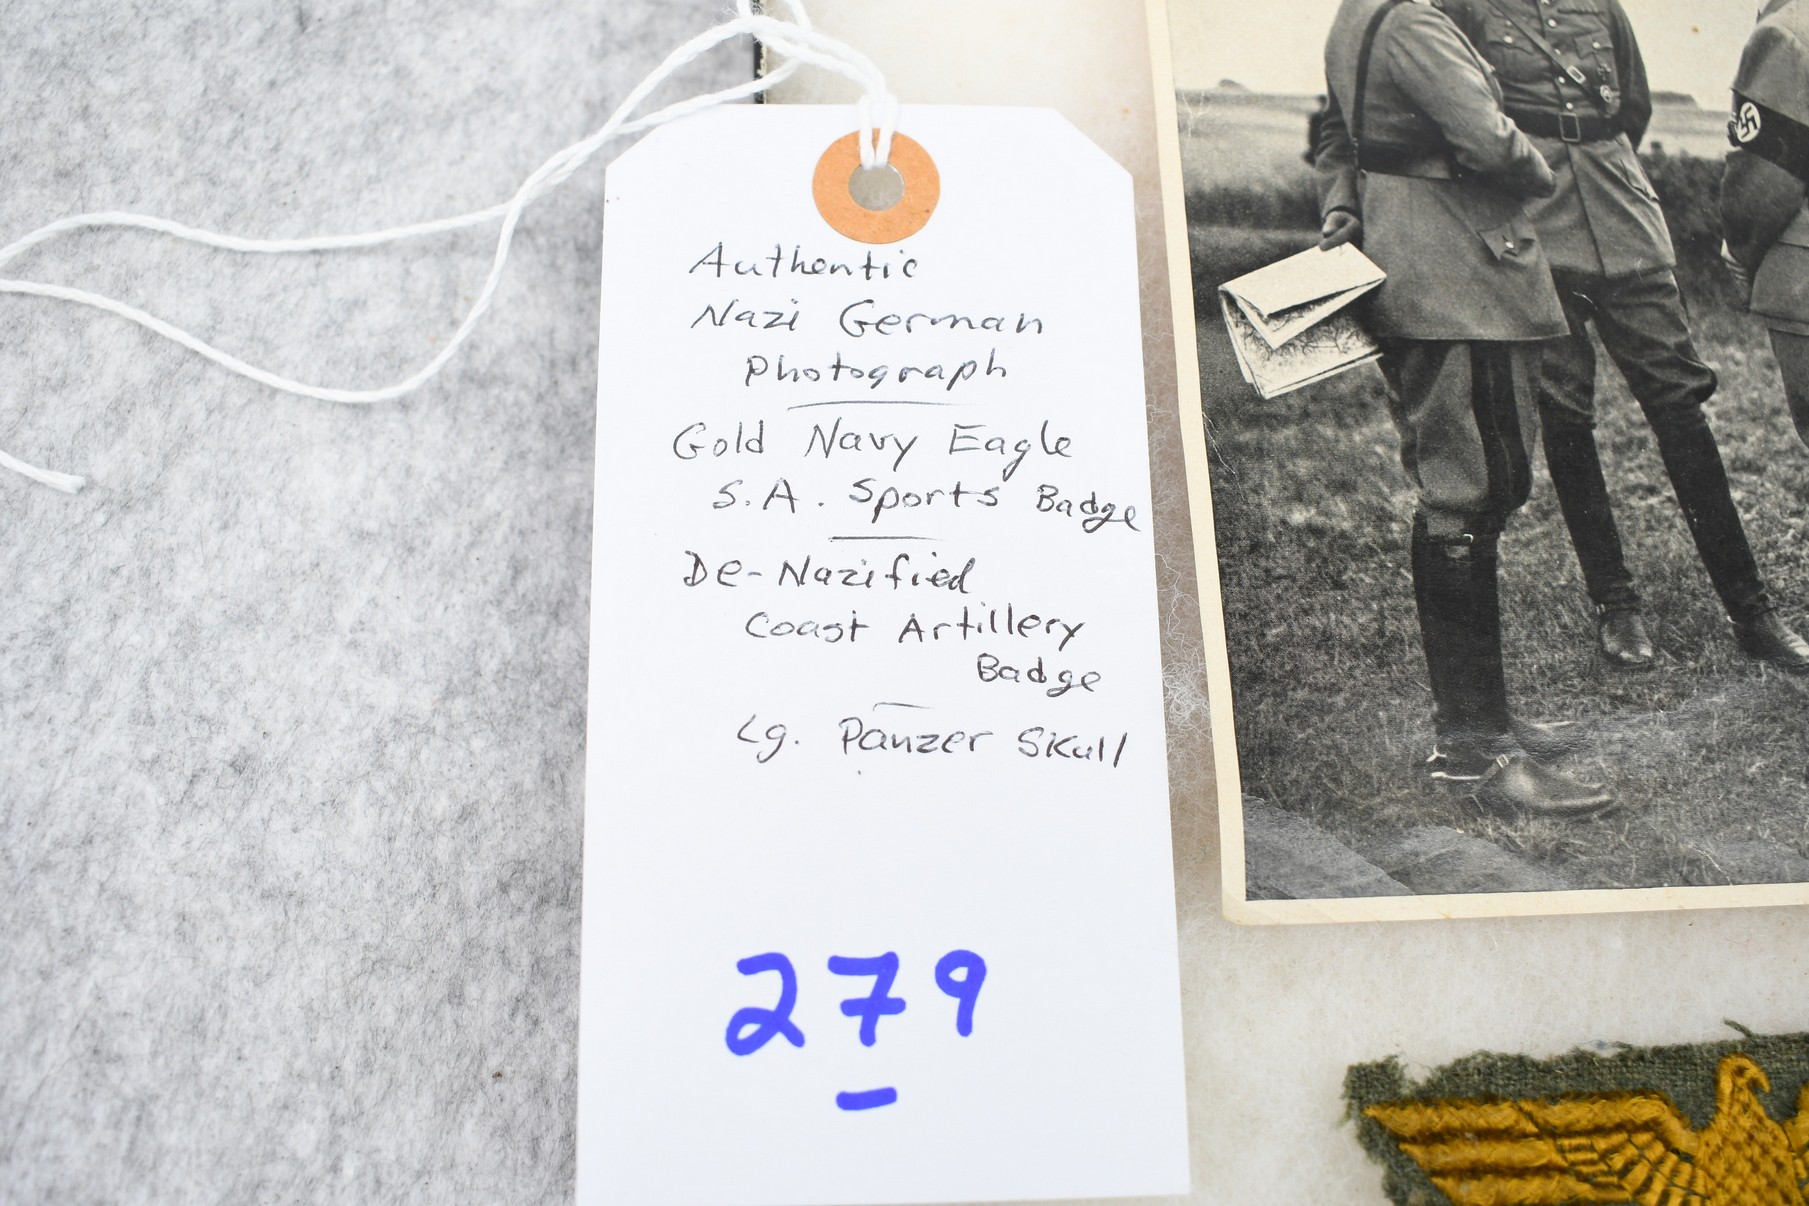 Authentic
Nazi German
Photograph
Gold Navy Eagle
S.A. Sports Badge
De-Nazified
Coast Artillery
Badge
Lg. Panzer Skull
279